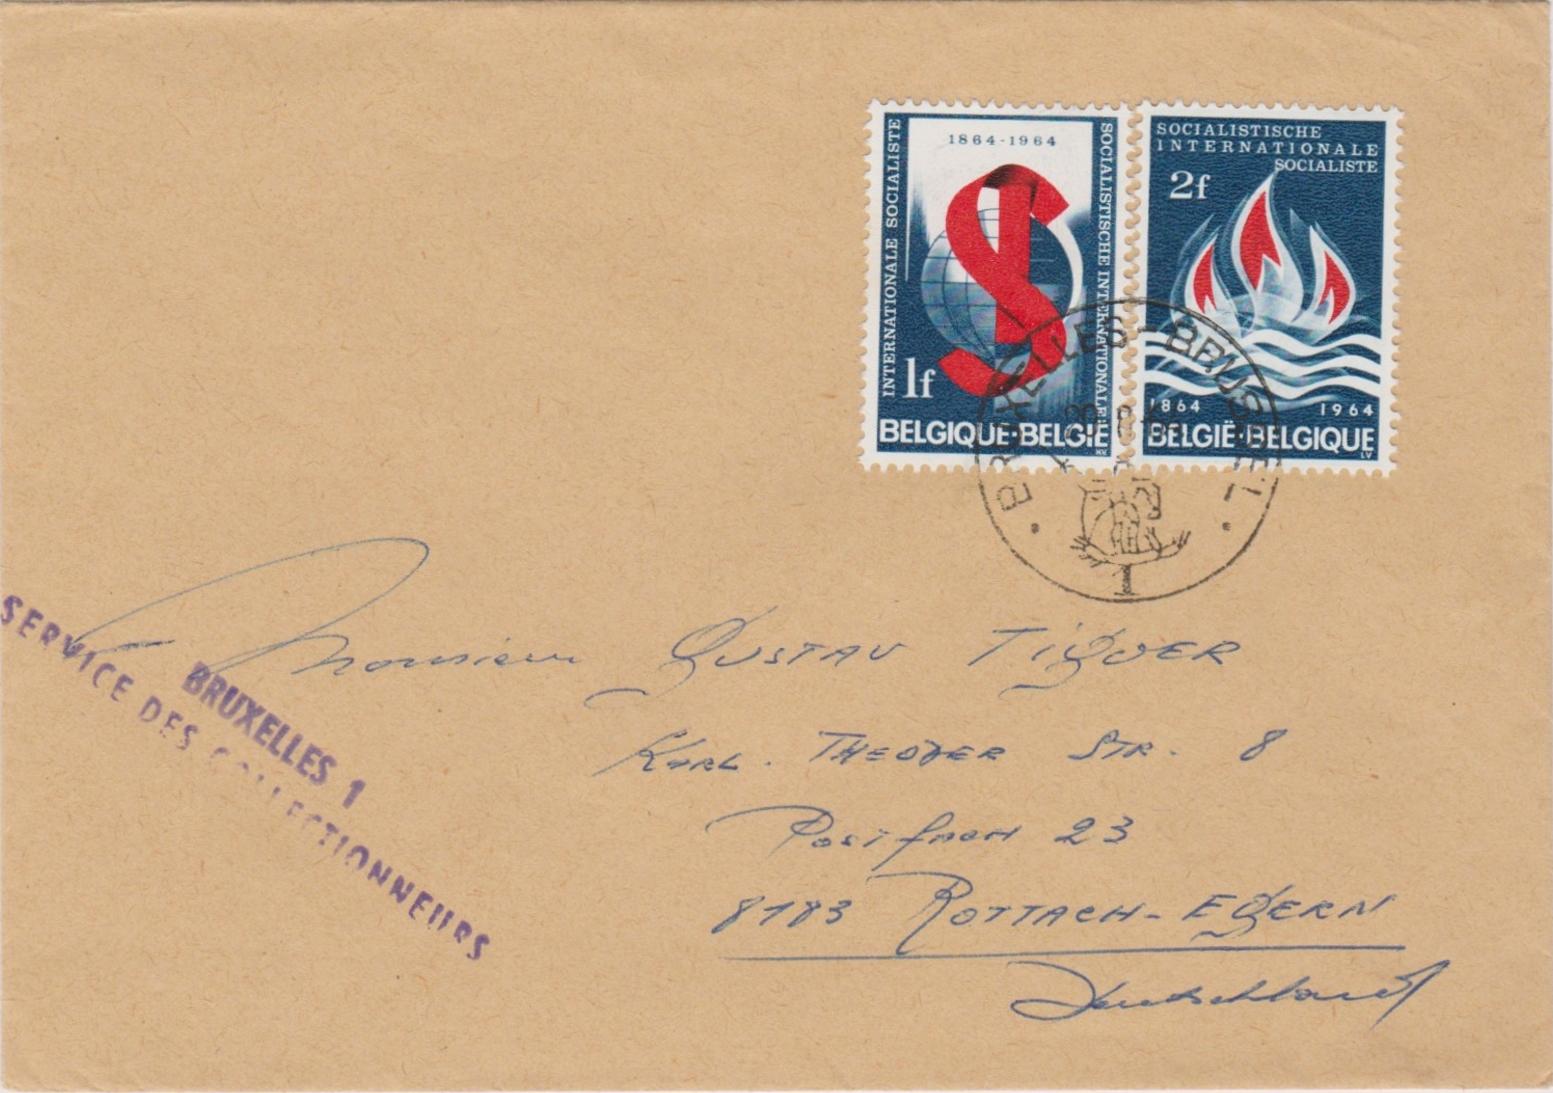 INTERNATIONALE SOCIALISTE
1864-1964
SOCIALISTISCHE INTERNATIONALE
1f
BELGIQUE·BELGIË
SOCIALISTISCHE
INTERNATIONALE
SOCIALISTE
2f
1864 1964
BELGIË·BELGIQUE
BRUXELLES-BRUSSEL
1
Monsieur Gustav Tigver
Karl. Theoder Str. 8
Postfach 23
8183 Rottach-Egern
Deutschland
BRUXELLES 1
SERVICE DES COLLECTIONNEURS